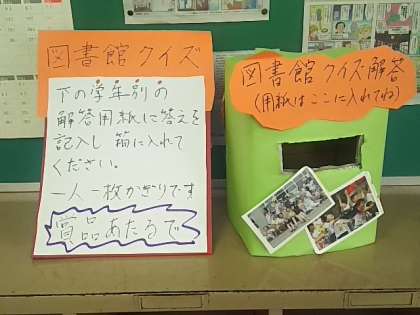 図書館クイズ
下の学年別の
解答用紙に答えを
記入し箱に入れて
ください。
一人一枚かぎりです
賞品あたるで
図書館クイズ解答
(用紙はここに入れてね)